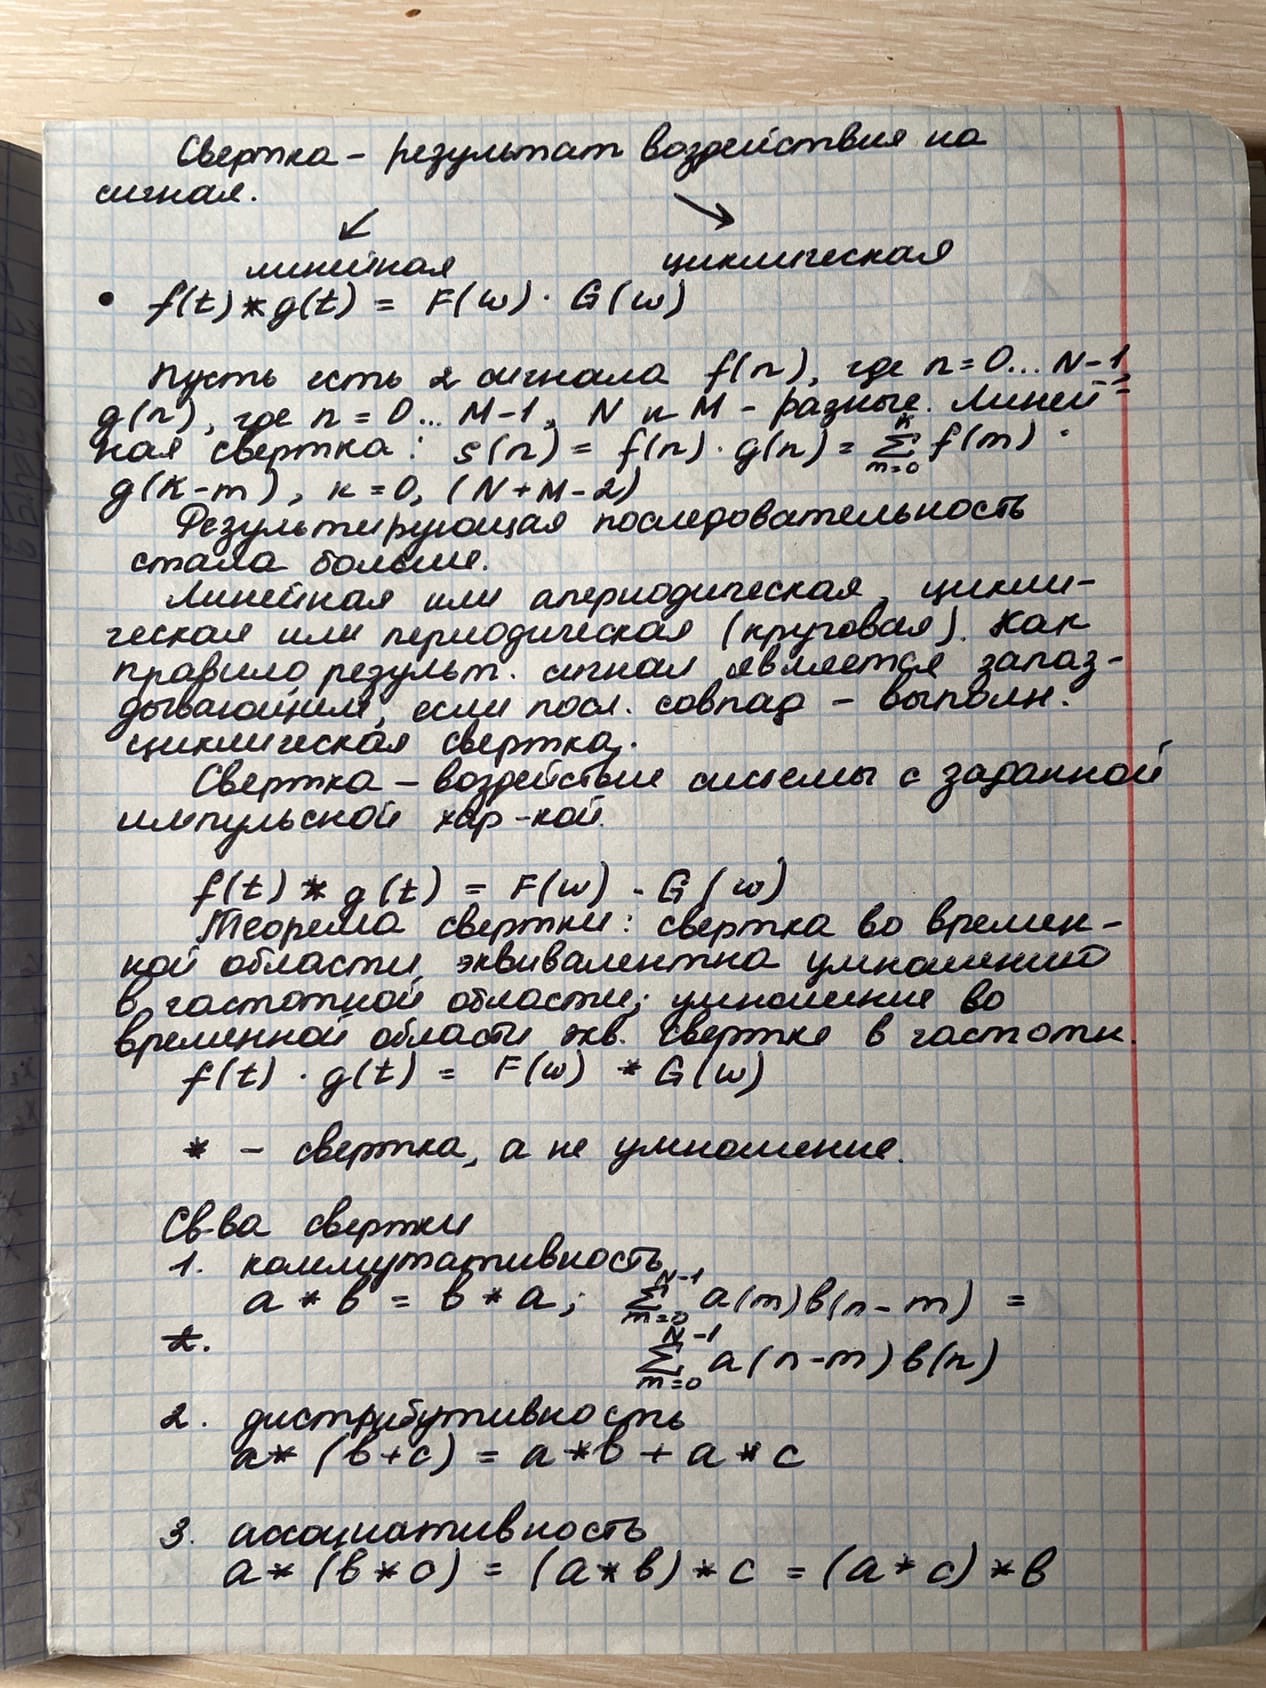 Свертка – результат воздействия на
сигнал.
↙ ↘
линейная циклическая
• f(t) * g(t) = F(w) · G(w)
Пусть есть 2 сигнала f(n), где n=0...N-1,
g(n), где n=0...M-1, N и M – разные. Линей-
ная свертка: s(n) = f(n) · g(n) = ∑_{m=0}^{k} f(m) ·
g(k-m), к=0, (N+M-2)
Результирующая последовательность
стала больше.
Линейная или апериодическая, цикли-
ческая или периодическая (круговая). Как
правило, результ. сигнал является запаз-
дывающим, если посл. совпад – выполн.
циклическая свертка.
Свертка – воздействие системы с заданной
импульсной хар-кой.
f(t) * g(t) = F(w) · G(w)
Теорема свертки: свертка во времен-
ной области, эквивалентна умножению
в частотной области; умножение во
временной области экв. свертке в частотн.
f(t) · g(t) = F(w) * G(w)
* – свертка, а не умножение.
Св-ва свертки
1. коммутативность
a * b = b * a; ∑_{m=0}^{N-1} a(m)b(n-m) =
2. ∑_{m=0}^{N-1} a(n-m)b(n)
2. дистрибутивность
a * (b+c) = a * b + a * c
3. ассоциативность
a * (b * c) = (a * b) * c = (a * c) * b